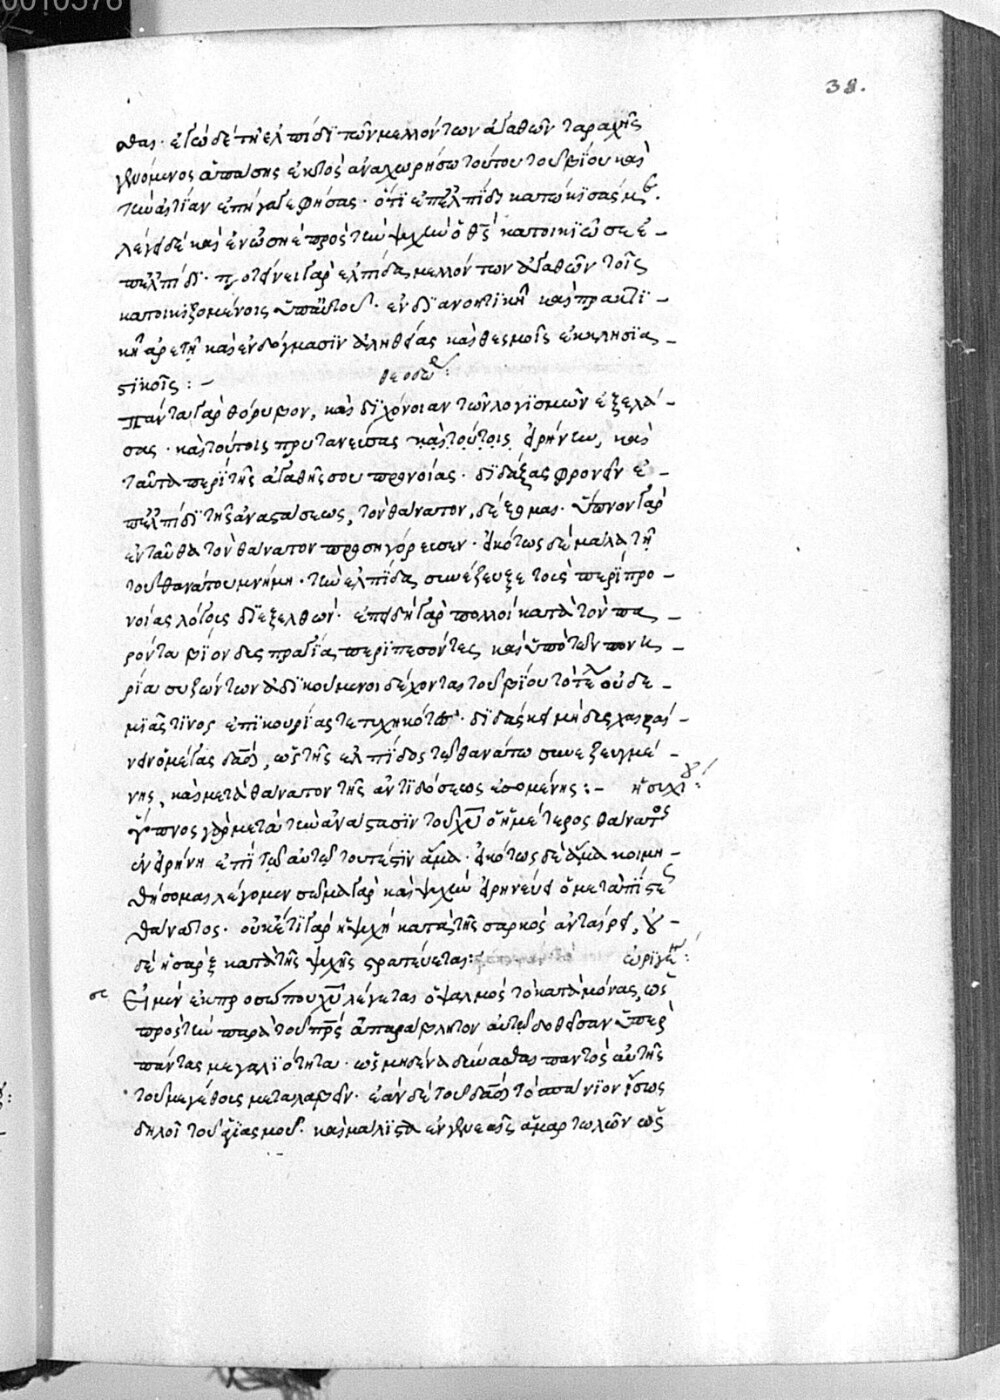 38.
σθαι· ἐγὼ δὲ τῇ ἐλπίδι τῶν μελλόντων ἀγαθῶν ταραχῆς
γενόμενος ἁπάσης ἐκτὸς ἀναχωρήσω τούτου τοῦ βίου καὶ
τὴν αἰτίαν ἐπήγαγε φήσας· ὅτι ἐπ' ἐλπίδι κατώκισάς με·
λέγει δὲ καὶ ἑνώσῃ πρὸς τὴν ψυχὴν ὁ θς κατοικιῶ σε ἐ-
π' ἐλπίδι· προτείνει γὰρ ἐλπίδα μελλόντων ἀγαθῶν τοῖς
κατοικιζομένοις ὑπ' αὐτοῦ· ἐν διανοητικῇ καὶ πρακτι-
κῇ ἀρετῇ καὶ ἐν δόγμασιν ἀληθείας καὶ θεσμοῖς ἐκκλησιασ-
τικοῖς :-
θεοδω :
πάντα γὰρ θόρυβον, καὶ διχόνοιαν τῶν λογισμῶν ἐξελά-
σας· καὶ τούτοις πρυτανεύσας καὶ τούτοις εἰρήνην, καὶ
ταῦτα περὶ τῆς ἀγαθῆς σου προνοίας· διδάξας φρονεῖν ἐ-
π' ἐλπίδι τῆς ἀναστάσεως, τὸν θάνατον δέχομαι· ὕπνον γὰρ
ἐνταῦθα τὸν θάνατον προσηγόρευσεν· εἰκότως δὲ μάλα τῇ
τοῦ θανάτου μνήμῃ· τὴν ἐλπίδα συνέζευξε τοὺς περὶ προ-
νοίας λόγοις διεξελθών· ἐπειδὴ γὰρ πολλοὶ κατὰ τὸν πα-
ρόντα βίον δυσπραγίαις περιπεσόντες καὶ ὑπὸ τῶν πονη-
ρία συζώντων ἀδικούμενοι δέχονται τοῦ βίου τὸ τέλ οὐδε-
μιᾶς τινος ἐπικουρίας τετυχηκότ· διδάσκει μὴ δυσχεραί-
νειν ὁ μέγας δαδ, ὡς τῆς ἐλπίδος τῷ θανάτω συνεζευγμέ-
νης, καὶ μετὰ θάνατον τῆς ἀντιδόσεως ἐσομένης :- ἡσυχί :
ὕπνος γὰρ μετὰ τὴν ἀνάστασιν τοῦ χυ ὁ ἡμέτερος θάνατος
ἐν εἰρήνῃ ἐπὶ τῷ αὐτῷ τουτέστιν ἅμα· εἰκότως δὲ ἅμα κοιμη-
θήσομαι λέγομεν σῶμα γὰρ καὶ ψυχὴν εἰρηνεύει ὁ μετὰ πίστε
θάνατος· οὐκέτι γὰρ ἡ ψυχὴ κατὰ τῆς σαρκὸς ἀνταίρει, οὐ-
δὲ ἡ σὰρξ κατὰ τῆς ψυχῆς στρατεύεται : ὠριγέν :
Εἰ μὲν ἐκ προσώπου χυ λέγεται ὁ ψαλμὸς τὸ κατὰ μόνας, ὡς
πρὸς τὴν παρὰ τοῦ πρς ἀπαράβλητον αὐτῷ δοθεῖσαν ὑπὲρ
πάντας μεγαλιότητα· ὡς μηδένα δύνασθαι παντὸς αὐτῆς
τοῦ μεγέθους μεταλαβεῖν· ἐὰν δὲ τοῦ δαδ τὸ σπάνιον ἴσως
δηλοῖ τοῦ ἁγιασμοῦ· καὶ μάλιστα ἐν γενεαῖς ἁμαρτωλῶν ὡς